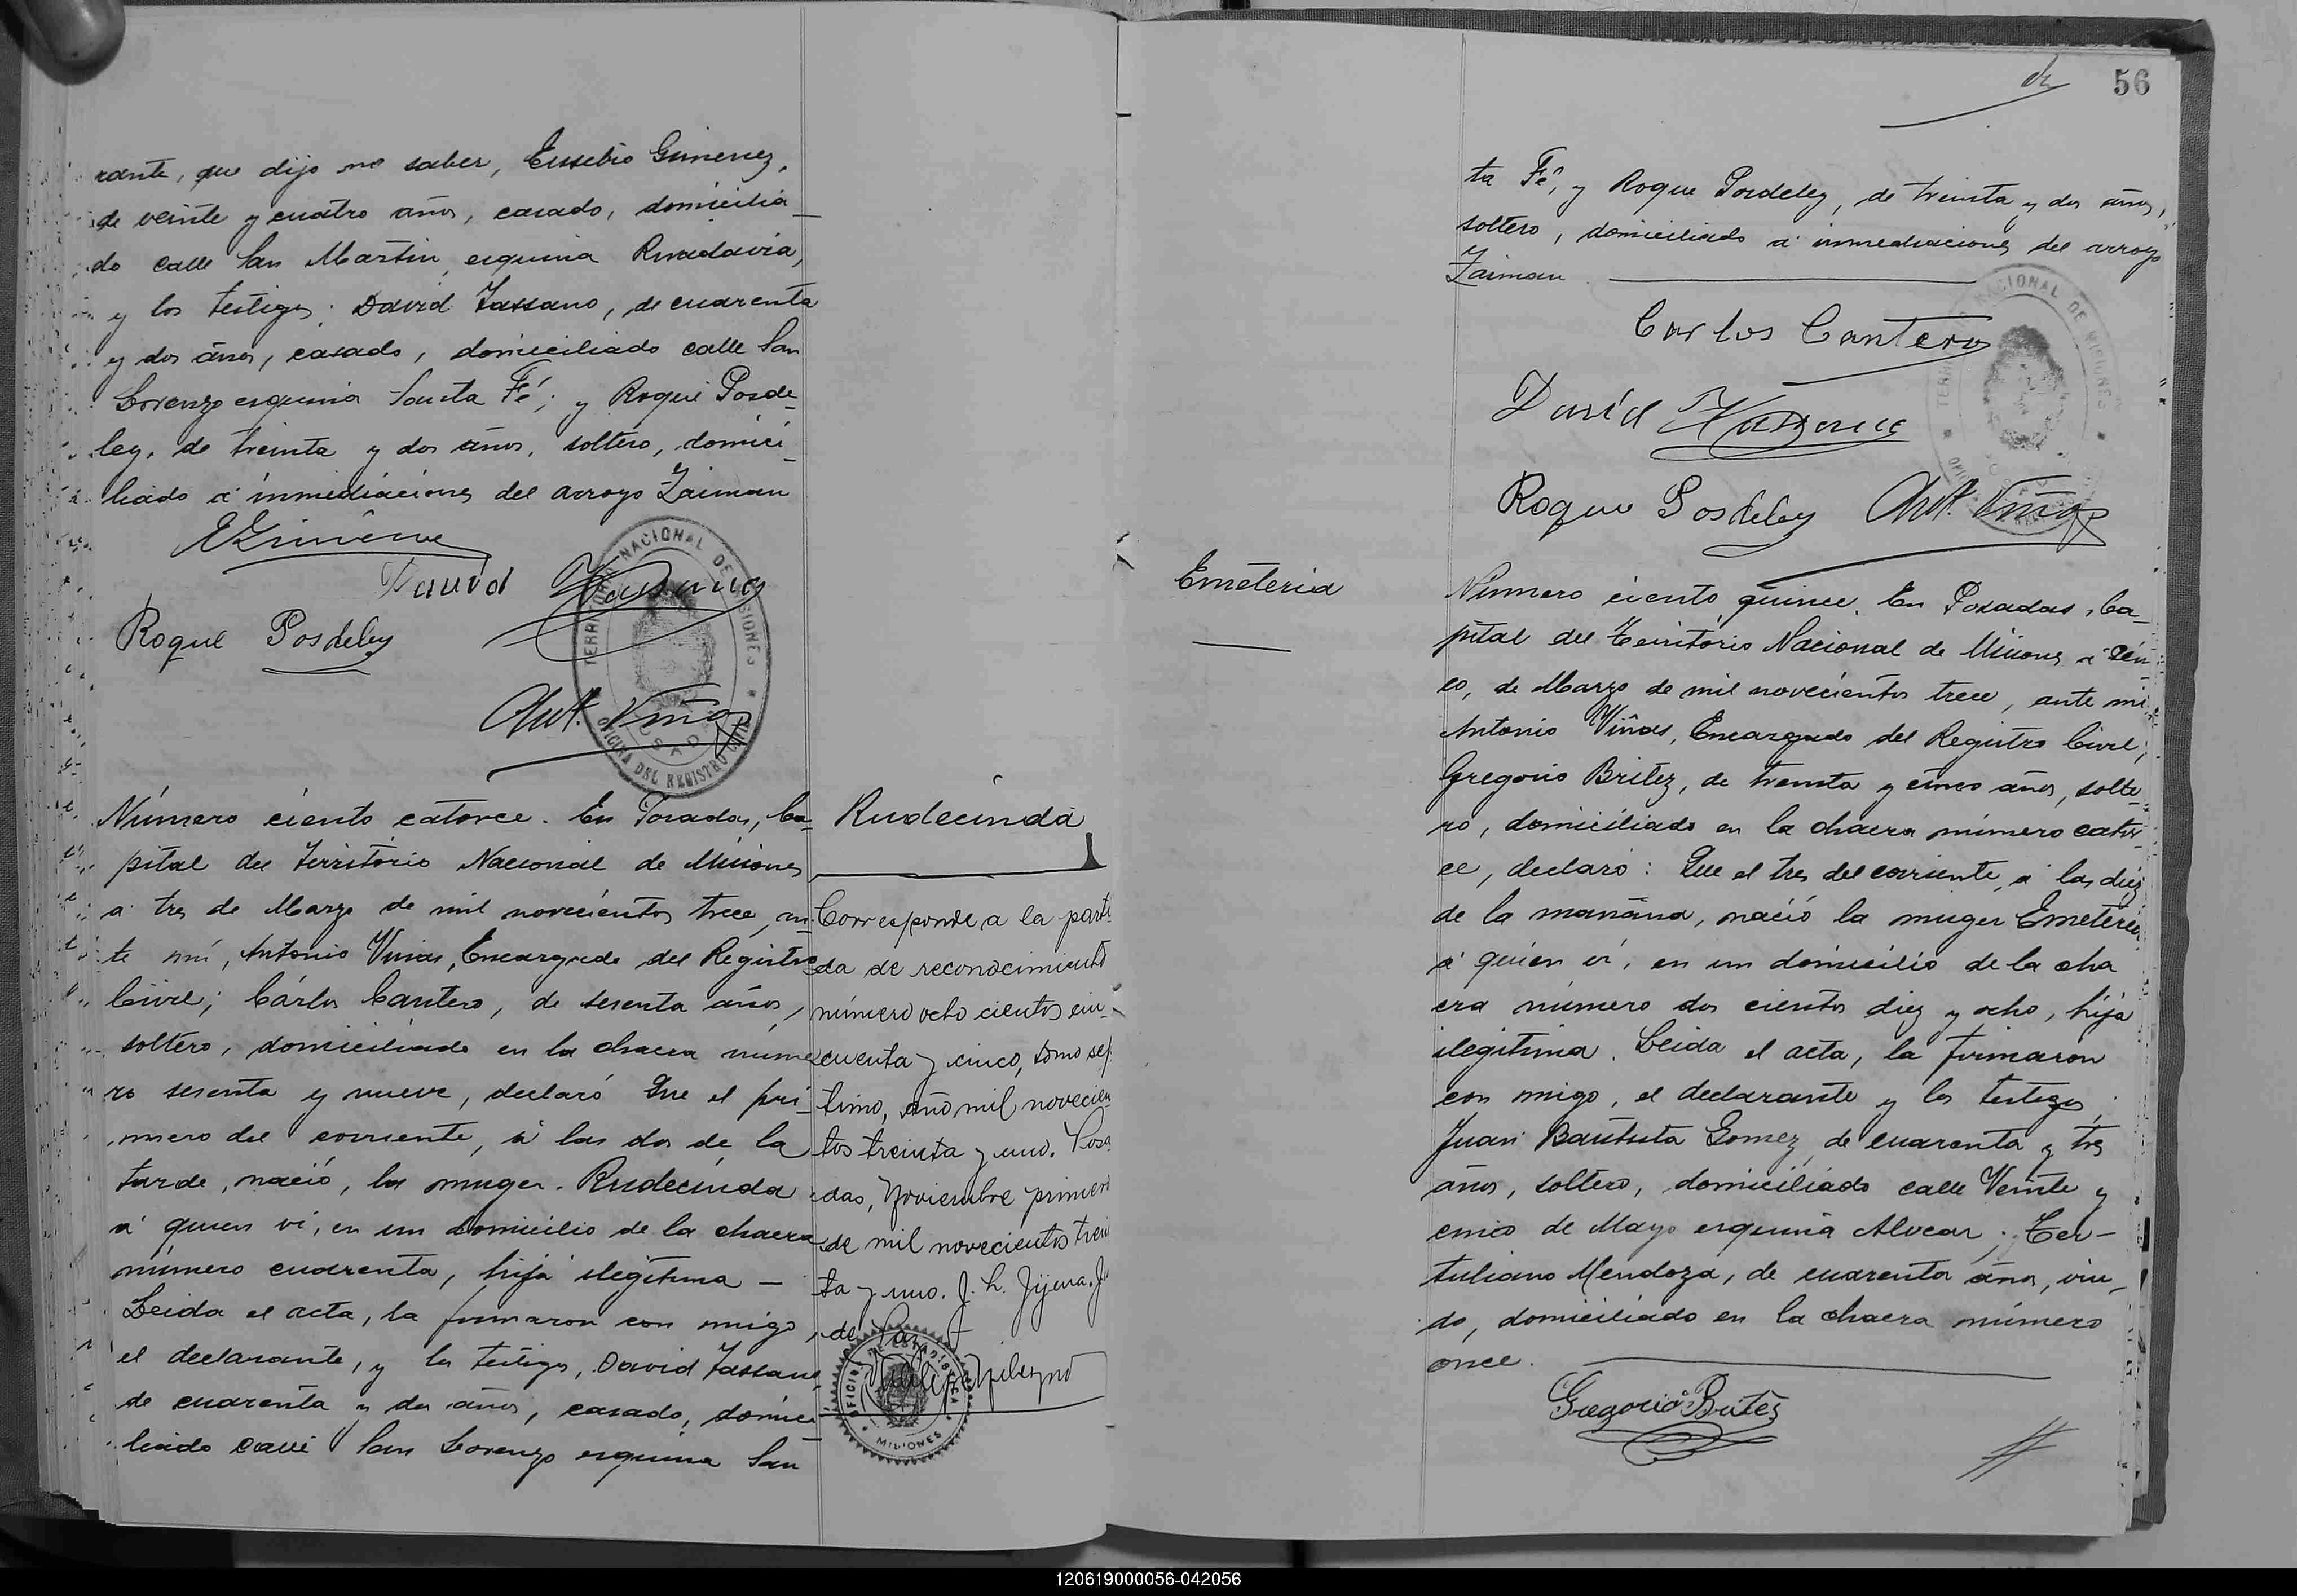 rante, que dijo no saber, Eusebio Gimenez,
de veinte y cuatro años, casado, domicilia
do calle San Martin esquina Rivadavia,
y los testigos: David Tassano, de cuarenta
y dos años, casado, domiciliado calle San
Lorenzo esquina Santa Fé; y Roque Posde-
ley, de treinta y dos años, soltero, domici
liado á inmediaciones del arroyo Zaiman
David
Roque Posdeley
Ant. Viñas
TERRITORIO NACIONAL DE MISIONES
OFICINA DEL REGISTRO CIVIL
POSADAS
Número ciento catorce. En Posadas, Ca-
pital del Territorio Nacional de Misiones
a tres de Marzo de mil novecientos trece, an-
te mí, Antonio Viñas, Encargado del Registro
Civil; Cárlos Cantero, de sesenta años,
soltero, domiciliado en la chacra nume
ro sesenta y nueve, declaró Que el pri-
mero del corriente, á las dos de la
tarde, nació, la muger Rudecinda
á quien ví, en un domicilio de la chacra
número cuarenta, hija ilegítima —
Leida el acta, la firmaron con migo,
el declarante, y los testigos, David Tassano
de cuarenta y dos años, casado, domici
liado calle San Lorenzo esquina San
Rudecinda
Corresponde a la parti-
da de reconocimiento
número ocho cientos cin-
cuenta y cinco, tomo sep
timo, año mil novecien
tos treinta y uno. Posa
das, Noviembre primero
de mil novecientos trein
ta y uno. J. L. Jijena. J
de Paz
OFICINA DE ESTADISTICA
MISIONES
56
ta Fé, y Roque Posdeley, de treinta y dos años,
soltero, domiciliado á inmediaciones del arroyo
Zaiman
Carlos Cantero
David Tassano
Roque Posdeley Ant. Viñas
TERRITORIO NACIONAL DE MISIONES
Emeteria
Número ciento quince. En Posadas, Ca-
pital del Territorio Nacional de Misiones á cin
co, de Marzo de mil novecientos trece, ante mi
Antonio Viñas, Encargado del Registro Civil;
Gregorio Britez, de treinta y cinco años, solte-
ro, domiciliado en la chacra número cator
ce, declaró: Que el tres del corriente, á las diez
de la mañana, nació la muger Emeteria
á quien ví, en un domicilio de la cha
cra número dos cientos diez y ocho, hija
ilegítima. Leida el acta, la firmaron
con migo, el declarante y los testigos,
Juan Bautista Gomez, de cuarenta y tres
años, soltero, domiciliado calle Veinte y
cinco de Mayo esquina Alvear; Ter-
tuliano Mendoza, de cuarenta años, viu-
do, domiciliado en la chacra número
once.
Gregorio Britez
120619000056-042056